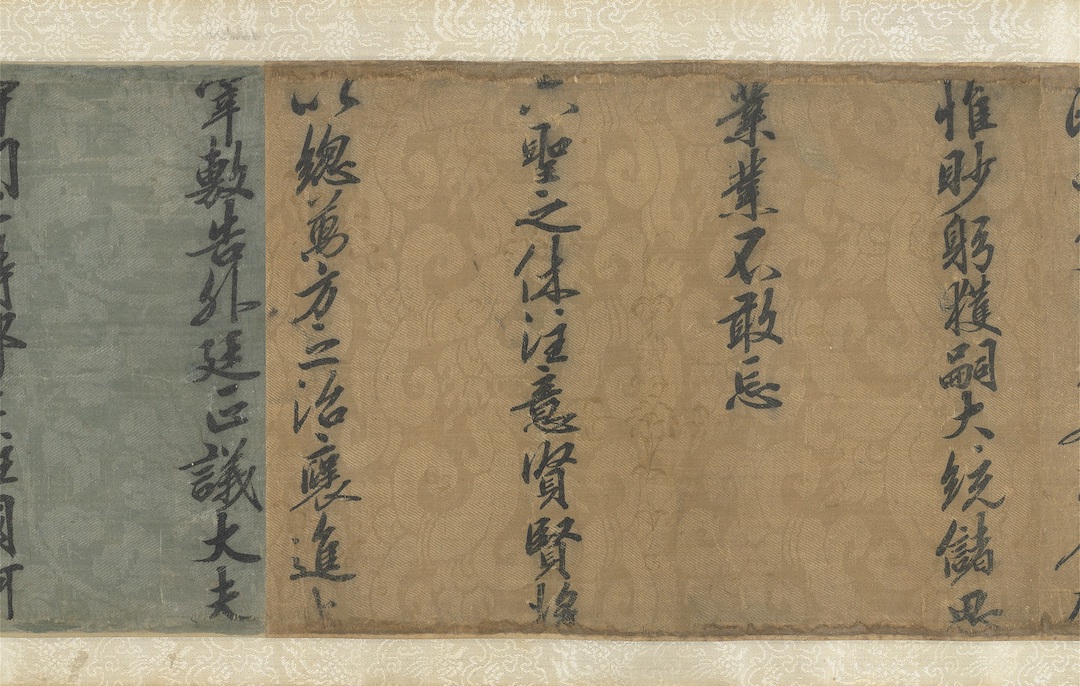 惟眇躬獲嗣大統儲
業業不敢忘
六聖之休注意賢賢將
以總萬方之治褒進
宰敷告外廷正議大夫